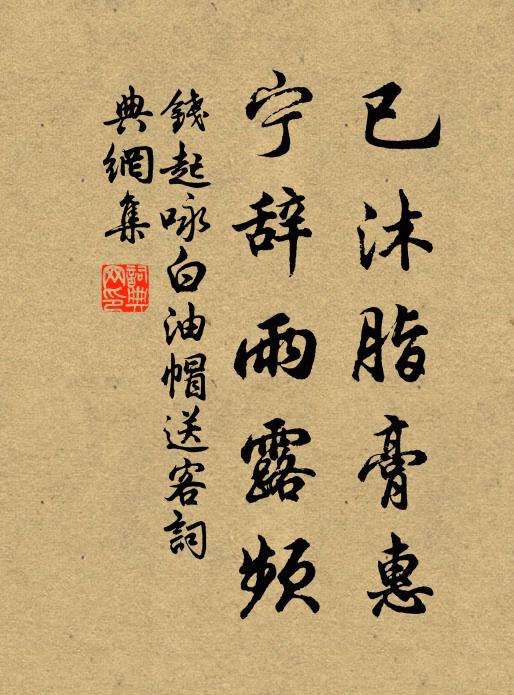 已沐脂膏惠
宁辞雨露频
錢起咏白油帽送客詞
典網集
詞典网印